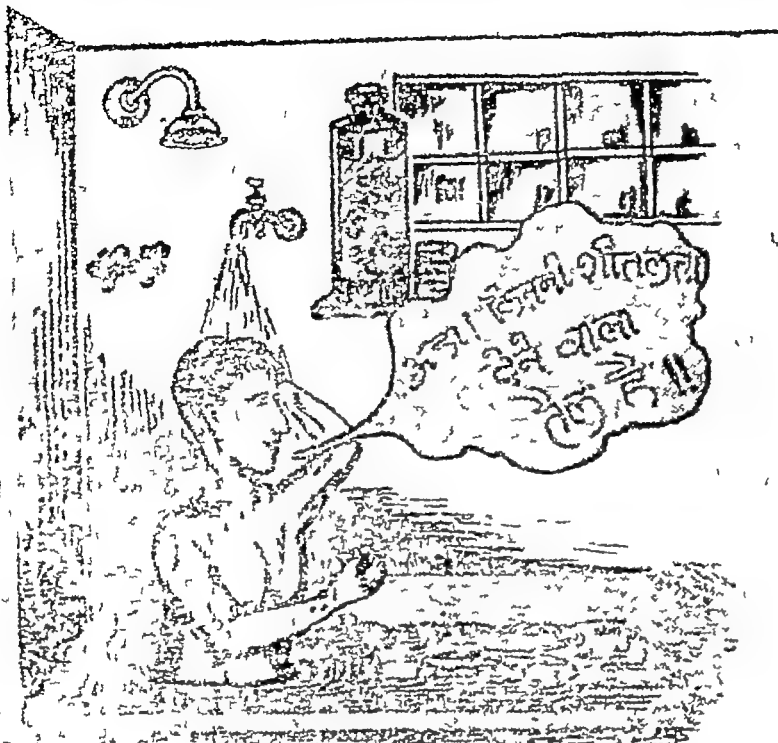 अहा! कितनी शीतलता
देने वाला
तेल है॥